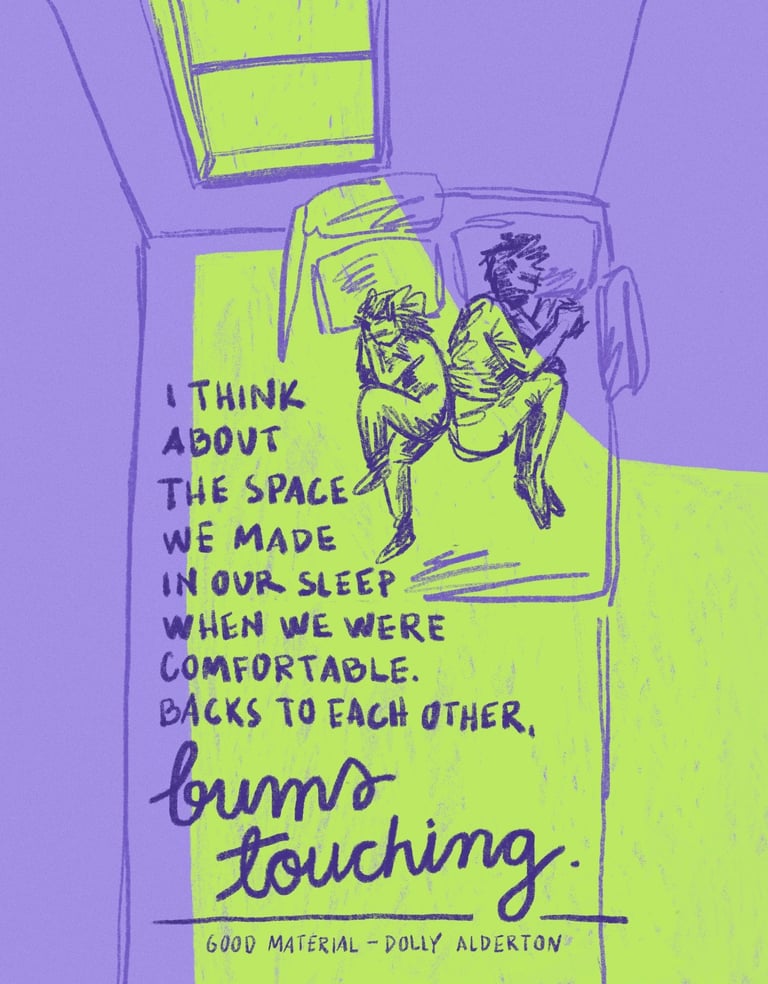 I THINK
ABOUT
THE SPACE
WE MADE
IN OUR SLEEP
WHEN WE WERE
COMFORTABLE.
BACKS TO EACH OTHER,
bums
touching.
GOOD MATERIAL - DOLLY ALDERTON